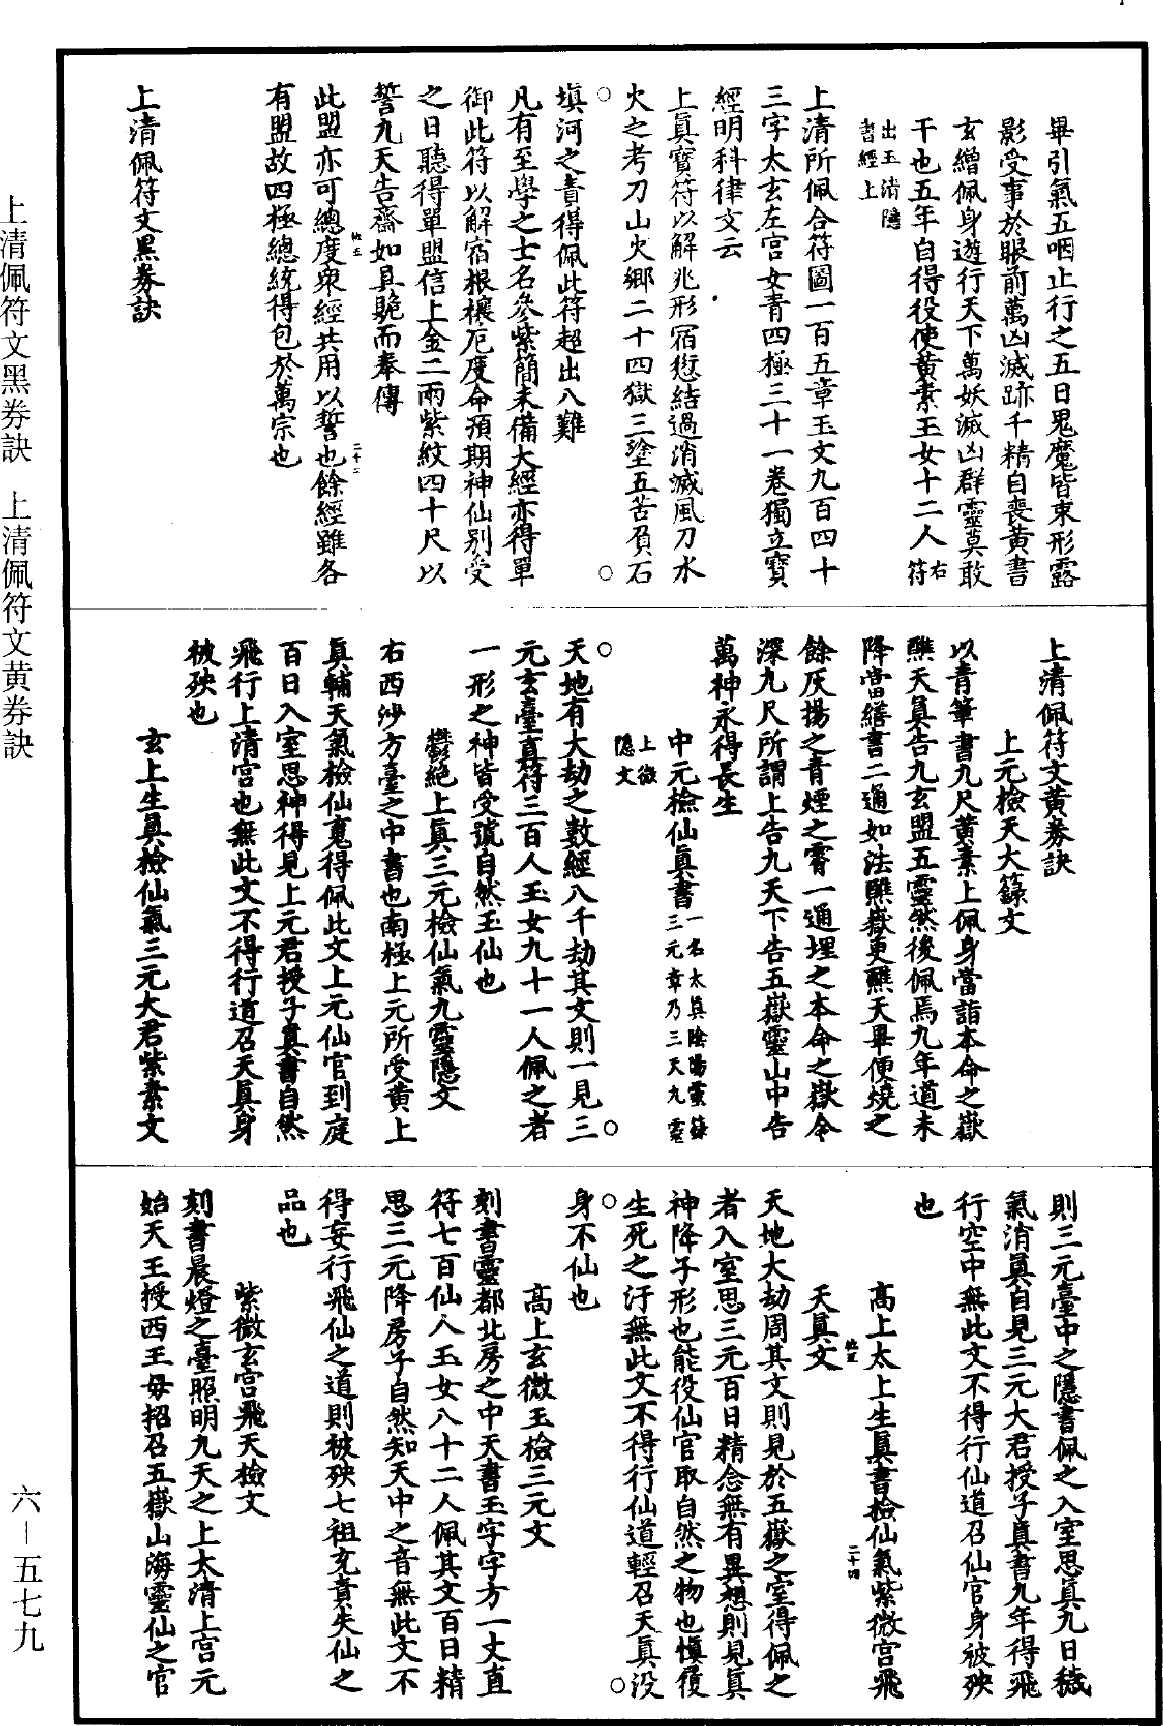 畢引氣五咽止行之五日鬼魔皆束形露
影受事於眼前萬凶滅跡千精自喪黃書
玄繒佩身遊行天下萬妖滅凶群靈莫敢
干也五年自得役使黃素玉女十二人右符
出玉清隱
書經上
上清所佩合符圖一百五章玉文九百四十
三字太玄左宮女青四極三十一卷獨立寶
經明科律文云
上真寶符以解兆形宿愆結過消滅風刀水
火之考刀山火鄉二十四獄三塗五苦負石
填河之責得佩此符超出八難
凡有至學之士名參紫簡未備大經亦得單
御此符以解宿根禳厄度命預期神仙別受
之日聽得單盟信上金二兩紫紋四十尺以
誓九天告齋如具貺而奉傳
此盟亦可總度衆經共用以誓也餘經雖各
有盟故四極總統得包於萬宗也
上清佩符文黑券訣
上清佩符文黃券訣
上元檢天大籙文
以青筆書九尺黃素上佩身當詣本命之嶽
醮天真告九玄盟五靈然後佩焉九年道未
降當繕書二通如法醮嶽更醮天畢便燒之
餘灰揚之青煙之霄一通埋之本命之嶽令
深九尺所謂上告九天下告五嶽靈山中告
萬神永得長生
中元檢仙真書一名太真陰陽靈籙
三元章乃三天九靈
上微
隱文
天地有大劫之數經八千劫其文則一見三
元玄臺真符三百人玉女九十一人佩之者
一形之神皆受號自然玉仙也
鬱絕上真三元檢仙氣九靈隱文
右西沙方臺之中書也南極上元所受黃上
真輔天氣檢仙寬得佩此文上元仙官到庭
百日入室思神得見上元君授子真書自然
飛行上清宮也無此文不得行道召天真身
被殃也
玄上生真檢仙氣三元大君紫素文
則三元臺中之隱書佩之入室思真九日穢
氣消真自見三元大君授子真書九年得飛
行空中無此文不得行仙道召仙官身被殃
也
高上太上生真書檢仙氣紫微宮飛
天真文
天地大劫周其文則見於五嶽之室得佩之
者入室思三元百日精念無有異想則見真
神降子形也能役仙官取自然之物也慎履
生死之汙無此文不得行仙道輕召天真没
身不仙也
高上玄微玉檢三元文
刻書靈都北房之中天書玉字字方一丈直
符七百仙人玉女八十二人佩其文百日精
思三元降房子自然知天中之音無此文不
得妄行飛仙之道則被殃七祖充責失仙之
品也
紫微玄宮飛天檢文
刻書晨燈之臺照明九天之上太清上宮元
始天王授西王母招召五嶽山海靈仙之官
上清佩符文黑券訣　上清佩符文黄券訣
六—五七九